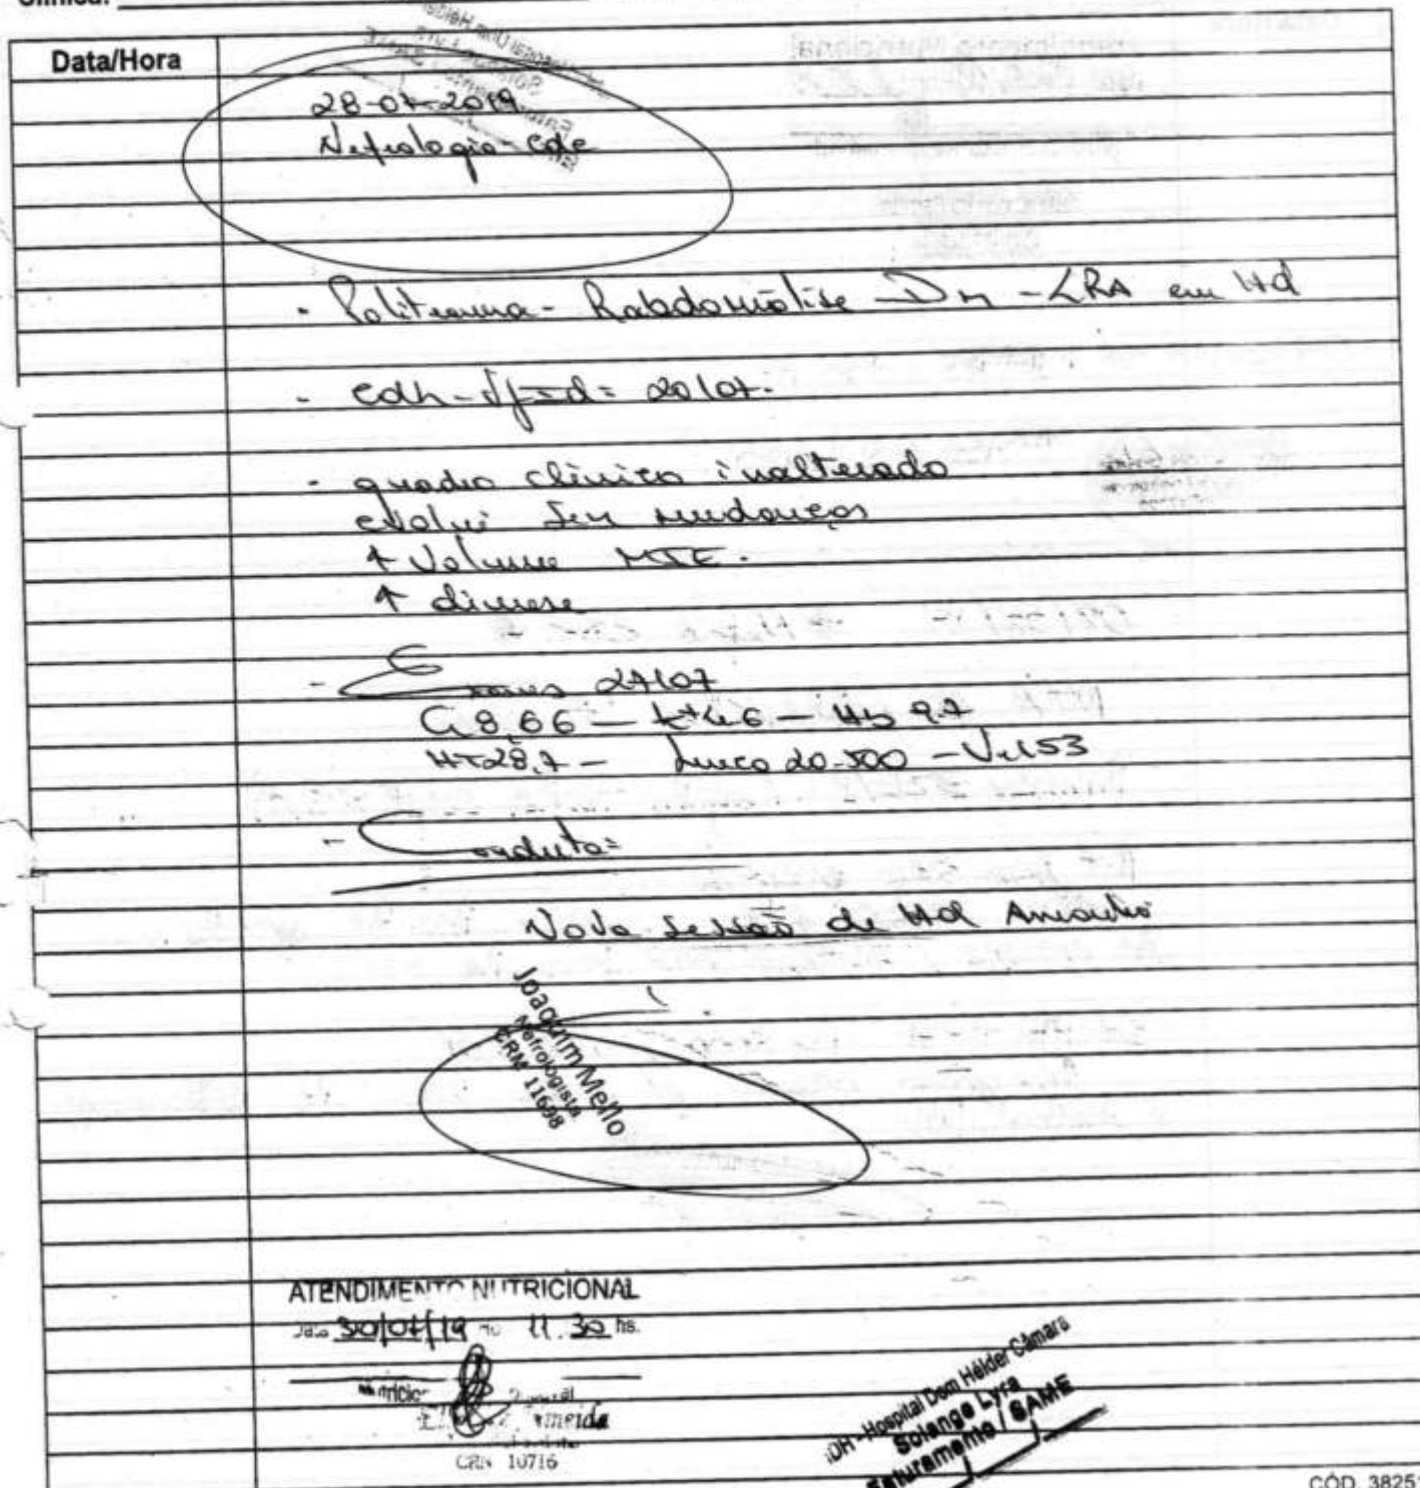 Clínica:
Data/Hora
28-07-2019
Nefrologia cde
- Politrauma - Rabdomiólise - Dm - LRA em Hd
- cdh - vfzd: 20/07.
- quadro clínico inalterado
evolui sem mudanças
↑ Volume MIE.
↑ diurese
- Exames 27/07
Cr 8,66 — K+ 4.6 — Hb 9.7
HT 28,7 — Leuco 20.500 — Ur 153
- Conduta:
Nova sessão de Hd Amanhã
Joaquim Mello
Nefrologista
CRM 11698
ATENDIMENTO NUTRICIONAL
30/07/19 11.30 hs.
CRN 10716
Hospital Dom Hélder Câmara
Solange Lyra
Faturamento / SAME
CÓD. 3825